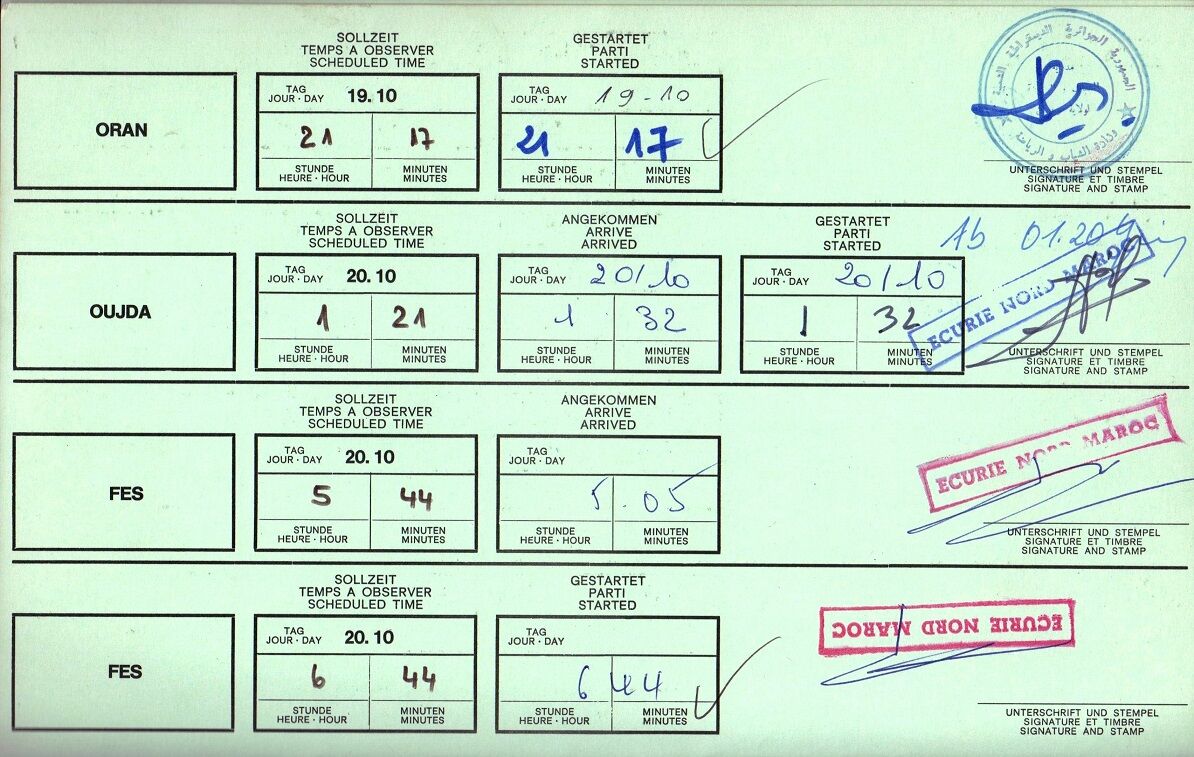 SOLLZEIT
TEMPS A OBSERVER
SCHEDULED TIME
GESTARTET
PARTI
STARTED
ORAN
TAG
JOUR · DAY 19.10
21 17
STUNDE MINUTEN
HEURE · HOUR MINUTES
TAG
JOUR · DAY 19-10
21 17
STUNDE MINUTEN
HEURE · HOUR MINUTES
UNTERSCHRIFT UND STEMPEL
SIGNATURE ET TIMBRE
SIGNATURE AND STAMP
SOLLZEIT
TEMPS A OBSERVER
SCHEDULED TIME
ANGEKOMMEN
ARRIVE
ARRIVED
GESTARTET
PARTI
STARTED
OUJDA
TAG
JOUR · DAY 20.10
1 21
STUNDE MINUTEN
HEURE · HOUR MINUTES
TAG
JOUR · DAY 20/10
1 32
STUNDE MINUTEN
HEURE · HOUR MINUTES
TAG
JOUR · DAY 20/10
1 32
STUNDE MINUTEN
HEURE · HOUR MINUTES
Ab 01.20
ECURIE NORD MAROC
UNTERSCHRIFT UND STEMPEL
SIGNATURE ET TIMBRE
SIGNATURE AND STAMP
SOLLZEIT
TEMPS A OBSERVER
SCHEDULED TIME
ANGEKOMMEN
ARRIVE
ARRIVED
FES
TAG
JOUR · DAY 20.10
5 44
STUNDE MINUTEN
HEURE · HOUR MINUTES
TAG
JOUR · DAY
5 . 05
STUNDE MINUTEN
HEURE · HOUR MINUTES
ECURIE NORD MAROC
UNTERSCHRIFT UND STEMPEL
SIGNATURE ET TIMBRE
SIGNATURE AND STAMP
SOLLZEIT
TEMPS A OBSERVER
SCHEDULED TIME
GESTARTET
PARTI
STARTED
FES
TAG
JOUR · DAY 20.10
6 44
STUNDE MINUTEN
HEURE · HOUR MINUTES
TAG
JOUR · DAY
6 44
STUNDE MINUTEN
HEURE · HOUR MINUTES
ECURIE NORD MAROC
UNTERSCHRIFT UND STEMPEL
SIGNATURE ET TIMBRE
SIGNATURE AND STAMP